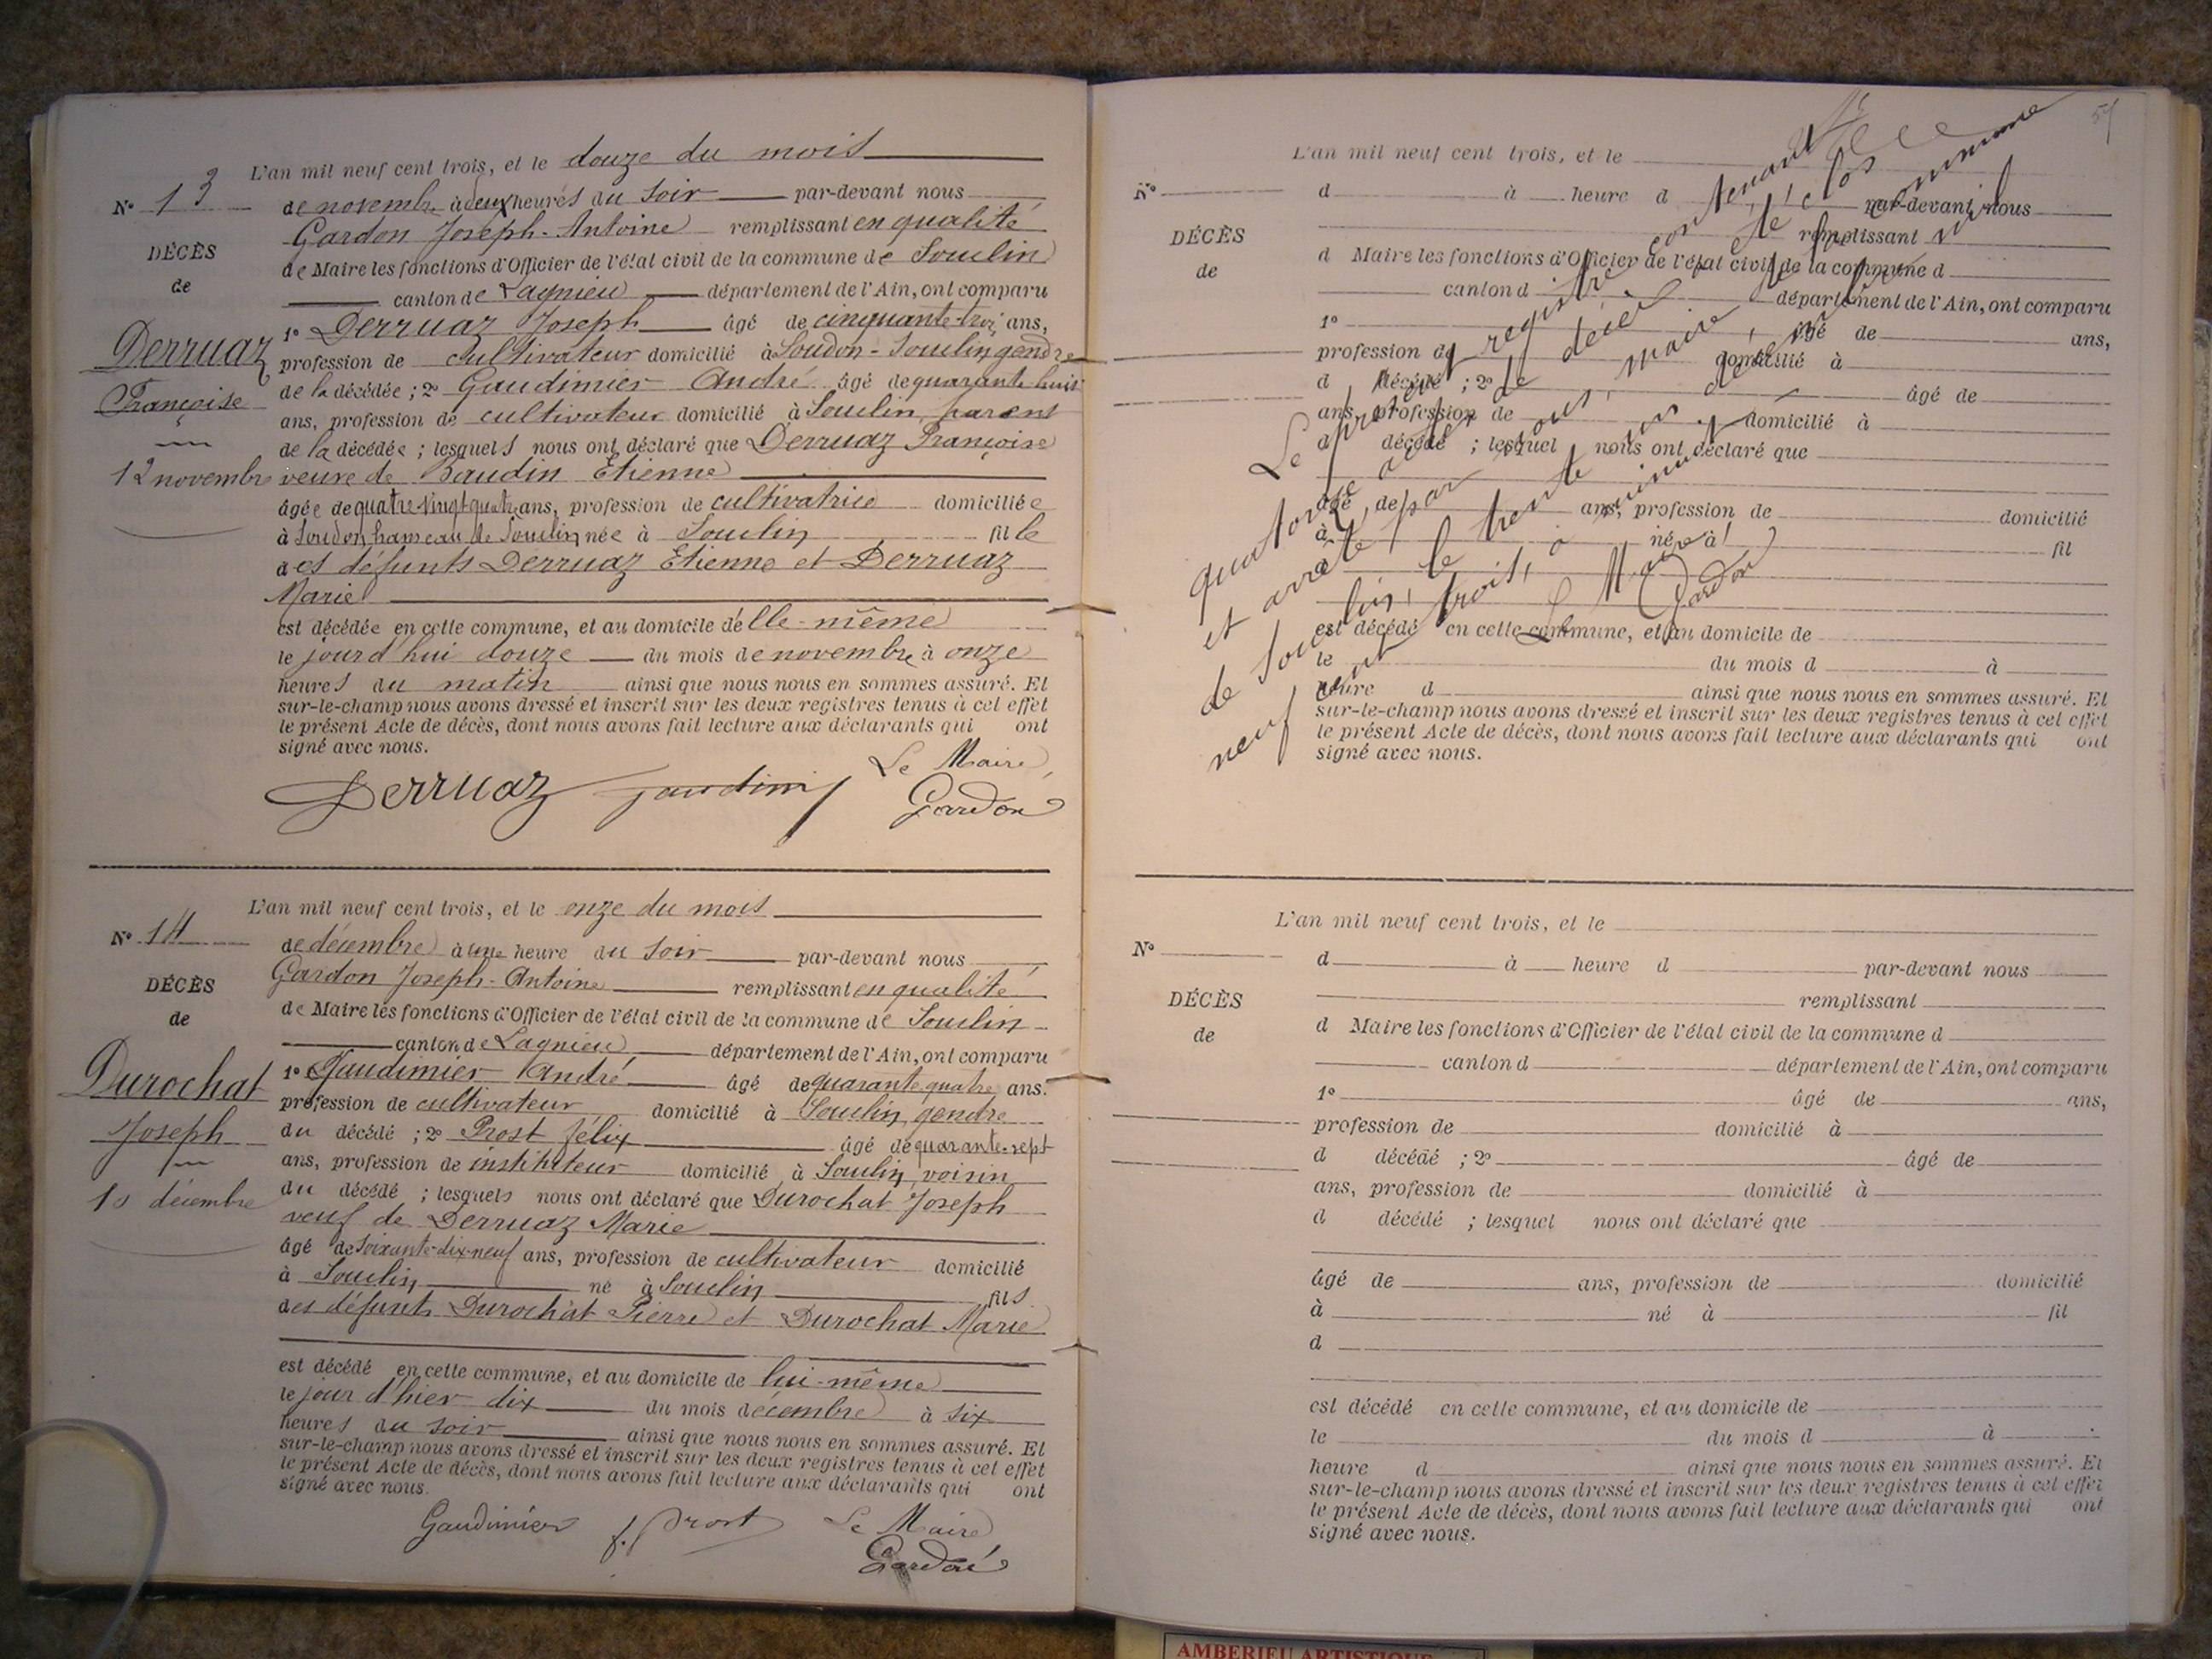 L'an mil neuf cent trois, et le douze du mois
N° 13 de novembre à deux heures du soir par-devant nous
Gardon Joseph-Antoine remplissant en qualité
DÉCÈS
de Maire les fonctions d'Officier de l'état civil de la commune de Souclin
de
canton de Lagnieu département de l'Ain, ont comparu
1° Derruaz Joseph âgé de cinquante-trois ans,
Derruaz
profession de cultivateur domicilié à Soudon-Souclin gendre
de la décédée ; 2° Gaudimier André âgé de quarante huit
Françoise
ans, profession de cultivateur domicilié à Souclin, parent
de la décédée ; lesquels nous ont déclaré que Derruaz Françoise
12 novembre
veuve de Baudin Etienne
âgée de quatre-vingt-quatre ans, profession de cultivatrice domiciliée
à Soudon, hameau de Souclin née à Souclin fille
des défunts Derruaz Etienne et Derruaz
Marie
est décédée en cette commune, et au domicile d'elle-même
le jourd'hui douze du mois de novembre à onze
heures du matin ainsi que nous nous en sommes assuré. Et
sur-le-champ nous avons dressé et inscrit sur les deux registres tenus à cet effet
le présent Acte de décès, dont nous avons fait lecture aux déclarants qui ont
signé avec nous.
Le Maire,
Derruaz Gaudimier Gardon
L'an mil neuf cent trois, et le onze du mois
N° 14 de décembre à une heure du soir par-devant nous
Gardon Joseph-Antoine remplissant en qualité
DÉCÈS
de Maire les fonctions d'Officier de l'état civil de la commune de Souclin
de
canton de Lagnieu département de l'Ain, ont comparu
1° Gaudimier André âgé de quarante quatre ans.
Durochat
profession de cultivateur domicilié à Souclin, gendre
du décédé ; 2° Prost Félix âgé de quarante-sept
Joseph
ans, profession de instituteur domicilié à Souclin, voisin
du décédé ; lesquels nous ont déclaré que Durochat Joseph
10 décembre
veuf de Derruaz Marie
âgé de soixante-dix-neuf ans, profession de cultivateur domicilié
à Souclin né à Souclin fils
des défunts Durochat Pierre et Durochat Marie
est décédé en cette commune, et au domicile de lui-même
le jour d'hier dix du mois décembre à six
heures du soir ainsi que nous nous en sommes assuré. Et
sur-le-champ nous avons dressé et inscrit sur les deux registres tenus à cet effet
le présent Acte de décès, dont nous avons fait lecture aux déclarants qui ont
signé avec nous.
Gaudimier f. Prost Le Maire
Gardon
L'an mil neuf cent trois, et le
N° d à heure d par-devant nous
DÉCÈS
remplissant
d Maire les fonctions d'Officier de l'état civil de la commune d
de
canton d département de l'Ain, ont comparu
1° âgé de ans,
profession de domicilié à
d décédé ; 2° âgé de
ans, profession de domicilié à
d décédé ; lesquel nous ont déclaré que
âgé de ans, profession de domicilié
à né à fil
est décédé en cette commune, et au domicile de
le du mois d à
heure d ainsi que nous nous en sommes assuré. Et
sur-le-champ nous avons dressé et inscrit sur les deux registres tenus à cet effet
le présent Acte de décès, dont nous avons fait lecture aux déclarants qui ont
signé avec nous.
Le présent registre contenant
quatorze actes de décès a été clos
et arrêté par nous, maire de la commune
de Souclin, le trente un décembre mil
neuf cent trois, à minuit
Le Maire
Gardon
L'an mil neuf cent trois, et le
N° d à heure d par-devant nous
DÉCÈS
remplissant
d Maire les fonctions d'Officier de l'état civil de la commune d
de
canton d département de l'Ain, ont comparu
1° âgé de ans,
profession de domicilié à
d décédé ; 2° âgé de
ans, profession de domicilié à
d décédé ; lesquel nous ont déclaré que
âgé de ans, profession de domicilié
à né à fil
d
est décédé en cette commune, et au domicile de
le du mois d à
heure d ainsi que nous nous en sommes assuré. Et
sur-le-champ nous avons dressé et inscrit sur les deux registres tenus à cet effet
le présent Acte de décès, dont nous avons fait lecture aux déclarants qui ont
signé avec nous.
AMBERIEU ARTISTIQUE